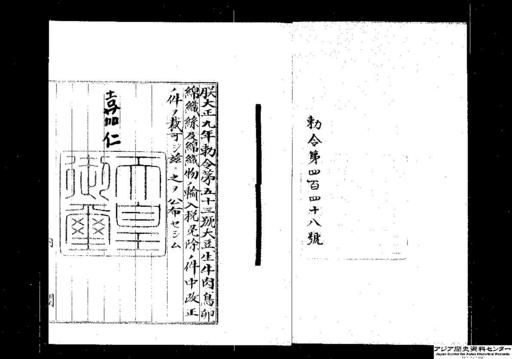 勅令第四百四十八號
朕大正九年勅令第五十三號大豆生牛肉鳥卵
綿織絲及綿織物ノ輸入税免除ノ件中改正
ノ件ヲ裁可シ茲ニ之ヲ公布セシム
嘉仁
天皇御璽
アジア歴史資料センター
Japan Center for Asian Historical Records